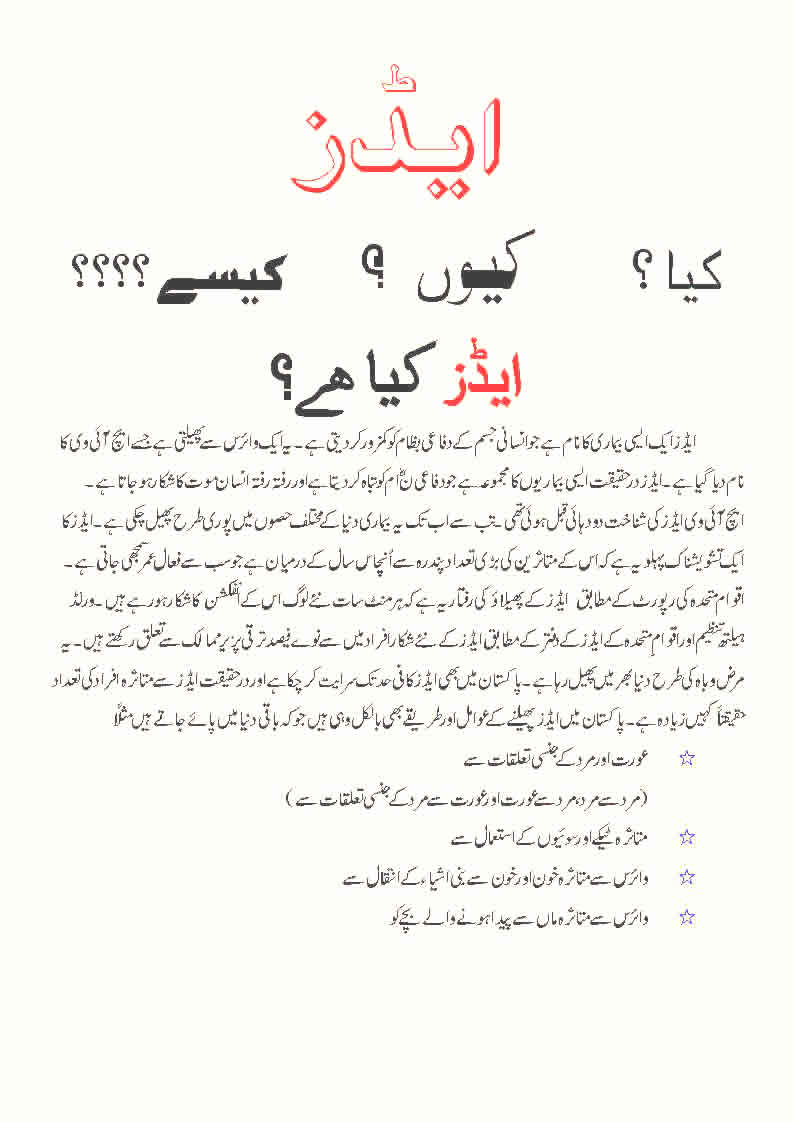 ایڈز
کیا ؟ کیوں ؟ کیسے ؟؟؟؟
ایڈز کیا ھے؟
ایڈز ایک ایسی بیماری کا نام ہے جو انسانی جسم کے دفاعی نظام کو کمزور کر دیتی ہے ۔ یہ ایک وائرس سے پھیلتی ہے جسے ایچ آئی وی کا
نام دیا گیا ہے ۔ ایڈز درحقیقت ایسی بیماریوں کا مجموعہ ہے جو دفاعی کو تباہ کر دیتا ہے اور رفتہ رفتہ انسان موت کا شکار ہو جاتا ہے ۔
ایچ آئی وی ایڈز کی شناخت دو دہائی قبل ہوئی تھی ۔ تب سے اب تک یہ بیماری دنیا کے مختلف حصوں میں پوری طرح پھیل چکی ہے ۔ ایڈز کا
ایک تشویشناک پہلو یہ ہے کہ اس کے متاثرین کی بڑی تعداد پندرہ سے اُنچاس سال کے درمیان ہے جو سب سے فعال عمر سمجھی جاتی ہے ۔
اقوام متحدہ کی رپورٹ کے مطابق ایڈز کے پھیلاؤ کی رفتار یہ ہے کہ ہر منٹ سات نئے لوگ اس کے انفکشن کا شکار ہو رہے ہیں ۔ ورلڈ
ہیلتھ تنظیم اور اقوام متحدہ کے ایڈز کے دفتر کے مطابق ایڈز کے نئے شکار افراد میں سے نوے فیصد ترقی پزیر ممالک سے تعلق رکھتے ہیں ۔ یہ
مرض وباہ کی طرح دنیا بھر میں پھیل رہا ہے ۔ پاکستان میں بھی ایڈز کافی حد تک سرایت کر چکا ہے اور درحقیقت ایڈز سے متاثرہ افراد کی تعداد
حقیقتاً کہیں زیادہ ہے ۔ پاکستان میں ایڈز پھیلنے کے عوامل اور طریقے بھی بالکل وہی ہیں جو کہ باقی دنیا میں پائے جاتے ہیں مثلاً
☆ عورت اور مرد کے جنسی تعلقات سے
(مرد سے مرد، مرد سے عورت اور عورت سے مرد کے جنسی تعلقات سے )
☆ متاثرہ ٹیکے اور سوئیوں کے استعمال سے
☆ وائرس سے متاثرہ خون اور خون سے بنی اشیاء کے انتقال سے
☆ وائرس سے متاثرہ ماں سے پیدا ہونے والے بچے کو